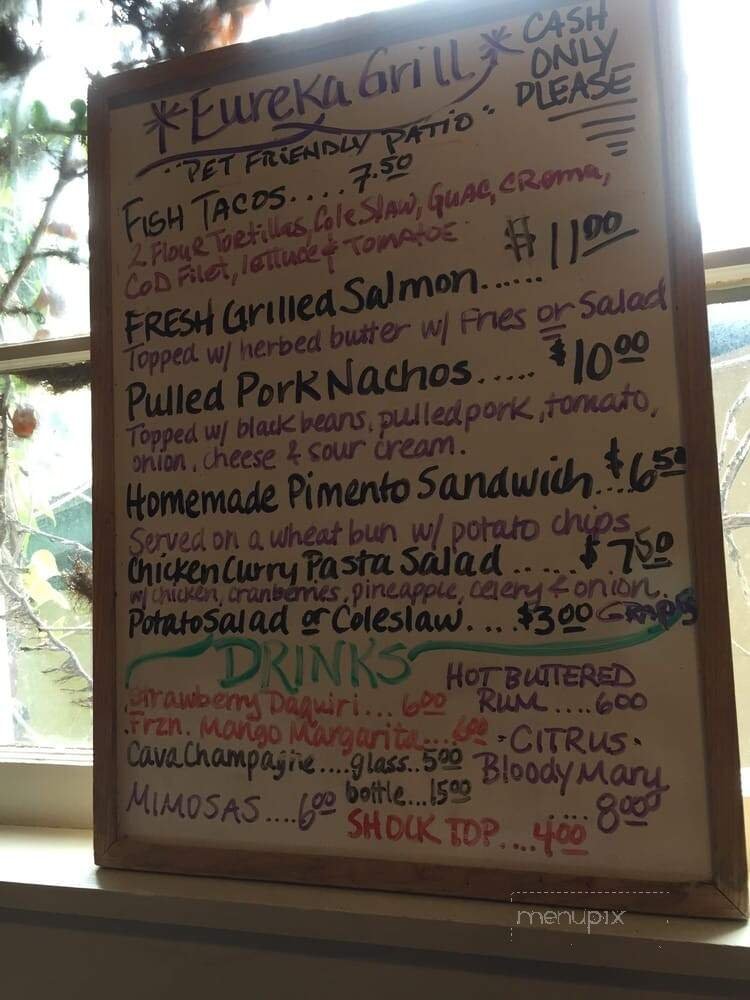 *Eureka Grill*
CASH
ONLY
PLEASE
"PET FRIENDLY PATIO"
FISH TACOS.... 7.50
2 Flour Tortillas, Cole Slaw, Guac, CRema,
COD Filet, lettuce & TOMATOE
FRESH Grilled Salmon...... $11.00
Topped w/ herbed butter w/ Fries or Salad
Pulled Pork Nachos..... $10.00
Topped w/ black beans, pulled pork, tomato,
onion, cheese & sour cream.
Homemade Pimento Sandwich.... $6.50
Served on a wheat bun w/ potato chips
Chicken Curry Pasta Salad ..... $7.50
w/ chicken, cranberries, pineapple, celery & onion.
GRAPES
Potato Salad or Coleslaw.... $3.00
DRINKS
Strawberry Daquiri... 6.00
Frzn. Mango Margarita... 6.00
Cava Champagne....glass..5.00
bottle...15.00
MIMOSAS....6.00
HOT BUTTERED
RUM ....6.00
·CITRUS·
Bloody Mary
.... 8.00
SHOCK TOP....4.00
menupix